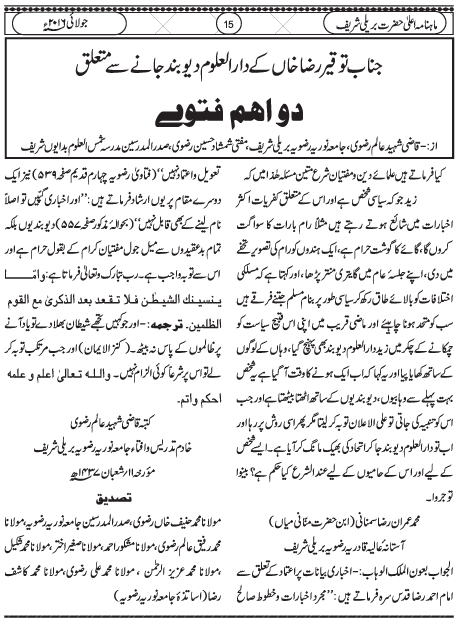 ماہنامہ اعلیٰ حضرت بریلی شریف
15
جولائی ۲۰۱۶ء
جناب توقیر رضا خاں کے دارالعلوم دیوبند جانے سے متعلق
دو اہم فتوے
از:- قاضی شہید عالم رضوی، جامعہ نوریہ رضویہ بریلی شریف، مفتی شمشاد حسین رضوی، صدر المدرسین مدرسہ شمس العلوم بدایوں شریف
کیا فرماتے ہیں علمائے دین و مفتیان شرع متین مسئلہ ھذا میں کہ
زید جو کہ سیاسی شخص ہے اور اس کے متعلق کفریات اکثر
اخبارات میں شائع ہوتے رہتے ہیں مثلاً رام بارات کا سواگت
کروں گا، گائے کا گوشت حرام ہے، ایک ہندوؤں کو رام کی تصویر تحفے
میں دی، اپنے جلسۂ عام میں گایتری منتر پڑھا، اور کہتا ہے کہ مسلکی
اختلافات کو بالائے طاق رکھ کر سیاسی طور پر بنام مسلم جتنے فرقے ہیں
سب کو متحد ہونا چاہیئے اور ماضی قریب میں اپنی اس قبیح سیاست کو
چمکانے کے چکر میں زید دارالعلوم دیوبند بھی پہنچ گیا، وہاں کے لوگوں
کے ساتھ کھایا پیا اور یہ کہا کہ اب ایک ہونے کا وقت آگیا ہے یہ شخص
بہت پہلے سے وہابیوں، دیوبندیوں کے ساتھ اٹھتا بیٹھتا ہے اور جب
اس کو تنبیہ کی جاتی تو علی الاعلان توبہ کر لیتا مگر پھر اسی روش پر رہا اور
اب تو دارالعلوم دیوبند جاکر اتحاد کی بھیک مانگ کر آیا ہے۔ ایسے شخص
کے لیے اور اس کے حامیوں کے لیے عندالشرع کیا حکم ہے؟ بینوا
توجروا۔
محمد عمران رضا سمنانی (ابن حضرت منانی میاں)
آستانہ عالیہ قادریہ رضویہ بریلی شریف
الجواب بعون الملک الوہاب:- اخباری بیانات پر اعتماد کے تعلق سے
امام احمد رضا قدس سرہ فرماتے ہیں: ''مجرد اخبارات و خطوط صالح
تعویل و اعتماد نہیں'' (فتاویٰ رضویہ چہارم قدیم صفحہ ۵۳۹) نیز ایک
دوسرے مقام پر یوں ارشاد فرماتے ہیں: ''اور اخباری گپیں تو اصلاً
نام لینے کے بھی قابل نہیں'' (بحوالۂ مذکور صفحہ ۵۵۷) دیوبندیوں بلکہ
تمام بدعقیدوں سے میل جول مفتیان کرام کے بقول حرام ہے اور
اس سے توبہ واجب ہے۔ رب تبارک وتعالیٰ فرماتا ہے: واِمّا
ینسینك الشیطٰن فلا تقعد بعد الذکریٰ مع القوم
الظٰلمین۔ ترجمہ:- اور جو کہیں تجھے شیطان بھلاوے تو یاد آنے
پر ظالموں کے پاس نہ بیٹھ۔ (کنز الایمان) اور جب مرتکب توبہ کر
لے تو اس پر شرعاً کوئی الزام نہیں۔ واللہ تعالیٰ اعلم و علمه
احکم و اتم۔
کتبہ قاضی شہید عالم رضوی
خادم تدریس و افتاء جامعہ نوریہ رضویہ بریلی شریف
مؤرخہ ۱۱ شعبان ۱۴۳۷ھ
تصدیق
مولانا محمد حنیف خاں رضوی، صدر المدرسین جامعہ نوریہ رضویہ، مولانا
محمد رفیق عالم رضوی، مولانا مشکور احمد، مولانا صغیر اختر، مولانا محمد شکیل
، مولانا محمد عزیز الرحمٰن ، مولانا محمد علی رضوی، مولانا محمد کاشف
رضا (اساتذہ جامعہ نوریہ رضویہ)